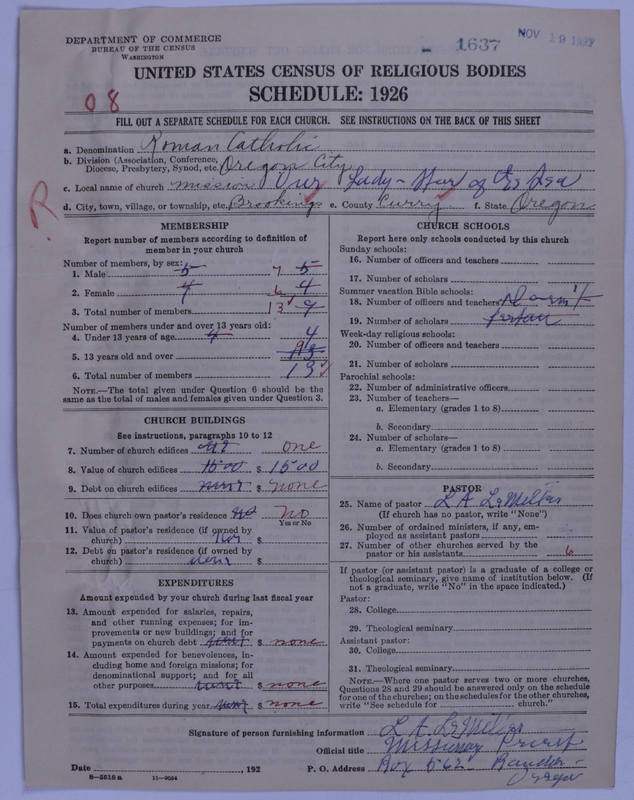 DEPARTMENT OF COMMERCE
BUREAU OF THE CENSUS
WASHINGTON
1637
NOV 19 1927
UNITED STATES CENSUS OF RELIGIOUS BODIES
SCHEDULE: 1926
08
FILL OUT A SEPARATE SCHEDULE FOR EACH CHURCH. SEE INSTRUCTIONS ON THE BACK OF THIS SHEET
a. Denomination Roman Catholic
b. Division (Association, Conference, Diocese, Presbytery, Synod, etc. Oregon City
c. Local name of church mission Our Lady - Star of the Sea
d. City, town, village, or township, etc. Brookings e. County Curry f. State Oregon
R
MEMBERSHIP
Report number of members according to definition of
member in your church
Number of members, by sex:
1. Male 5 7 5
2. Female 4 6 4
3. Total number of members 13 9
Number of members under and over 13 years old:
4. Under 13 years of age 4 4
5. 13 years old and over 9
6. Total number of members 13
NOTE.—The total given under Question 6 should be the
same as the total of males and females given under Question 3.
CHURCH BUILDINGS
See instructions, paragraphs 10 to 12
7. Number of church edifices one
8. Value of church edifices 1500 $ 1500
9. Debt on church edifices none $ none
10. Does church own pastor's residence no No
Yes or No
11. Value of pastor's residence (if owned by
church) $
12. Debt on pastor's residence (if owned by
church) none $
EXPENDITURES
Amount expended by your church during last fiscal year
13. Amount expended for salaries, repairs,
and other running expenses; for im-
provements or new buildings; and for
payments on church debt none $ none
14. Amount expended for benevolences, in-
cluding home and foreign missions; for
denominational support; and for all
other purposes none $ none
15. Total expenditures during year none $ none
CHURCH SCHOOLS
Report here only schools conducted by this church
Sunday schools:
16. Number of officers and teachers
17. Number of scholars
Summer vacation Bible schools:
18. Number of officers and teachers
19. Number of scholars
Week-day religious schools:
20. Number of officers and teachers
21. Number of scholars
Parochial schools:
22. Number of administrative officers
23. Number of teachers—
a. Elementary (grades 1 to 8)
b. Secondary
24. Number of scholars—
a. Elementary (grades 1 to 8)
b. Secondary
PASTOR
25. Name of pastor L A
(If church has no pastor, write "None")
26. Number of ordained ministers, if any, em-
ployed as assistant pastors
27. Number of other churches served by the
pastor or his assistants 6
If pastor (or assistant pastor) is a graduate of a college or
theological seminary, give name of institution below. (If
not a graduate, write "No" in the space indicated.)
Pastor:
28. College
29. Theological seminary
Assistant pastor:
30. College
31. Theological seminary
NOTE.—Where one pastor serves two or more churches,
Questions 28 and 29 should be answered only on the schedule
for one of the churches; on the schedules for the other churches,
write "See schedule for church."
Signature of person furnishing information L A
Official title Missionary Priest
Date , 192 P. O. Address Box 562 Bandon
Oregon
8—5518a 11—9054